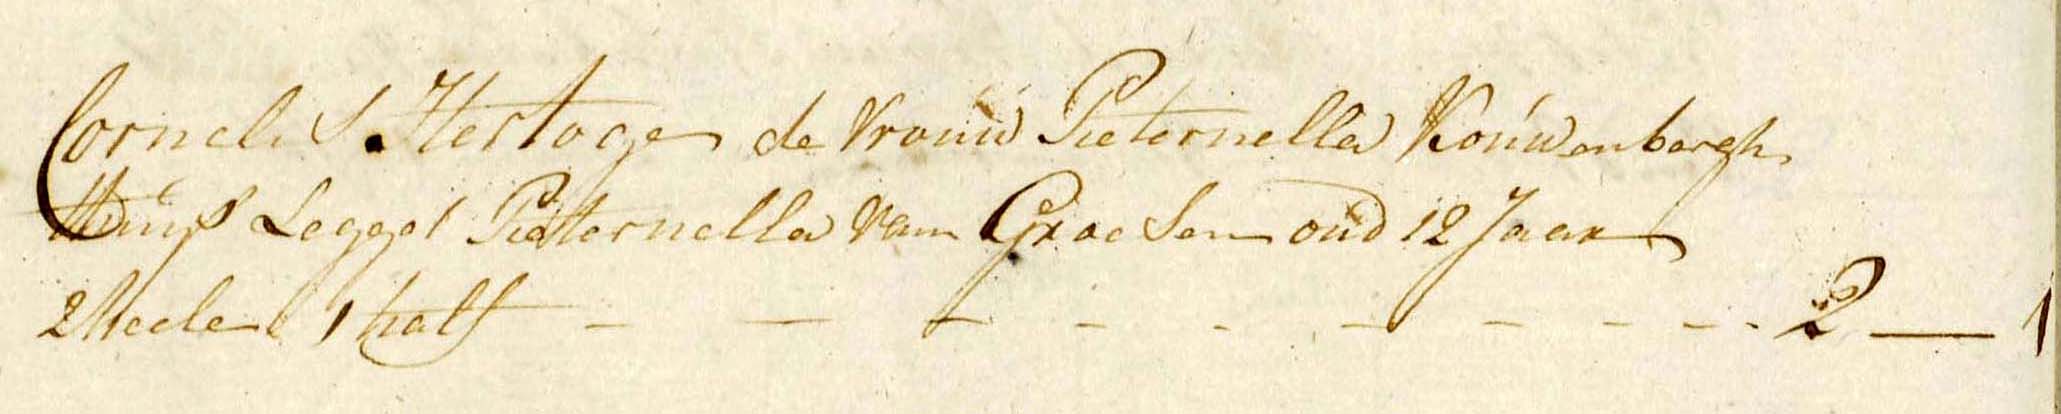 Cornelis Hertoge de Vrouw Pieternella Kouwenbergh
Thuys Legget Pieternella Van Graesen oud 12 Jaar
2 heele 1 half - - - - - - - - - - 2 — 1